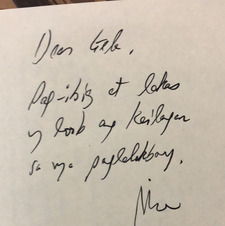 Dear
Pag-ibig at lakas
ng loob ang Kailangan
sa mga paglalakbay.